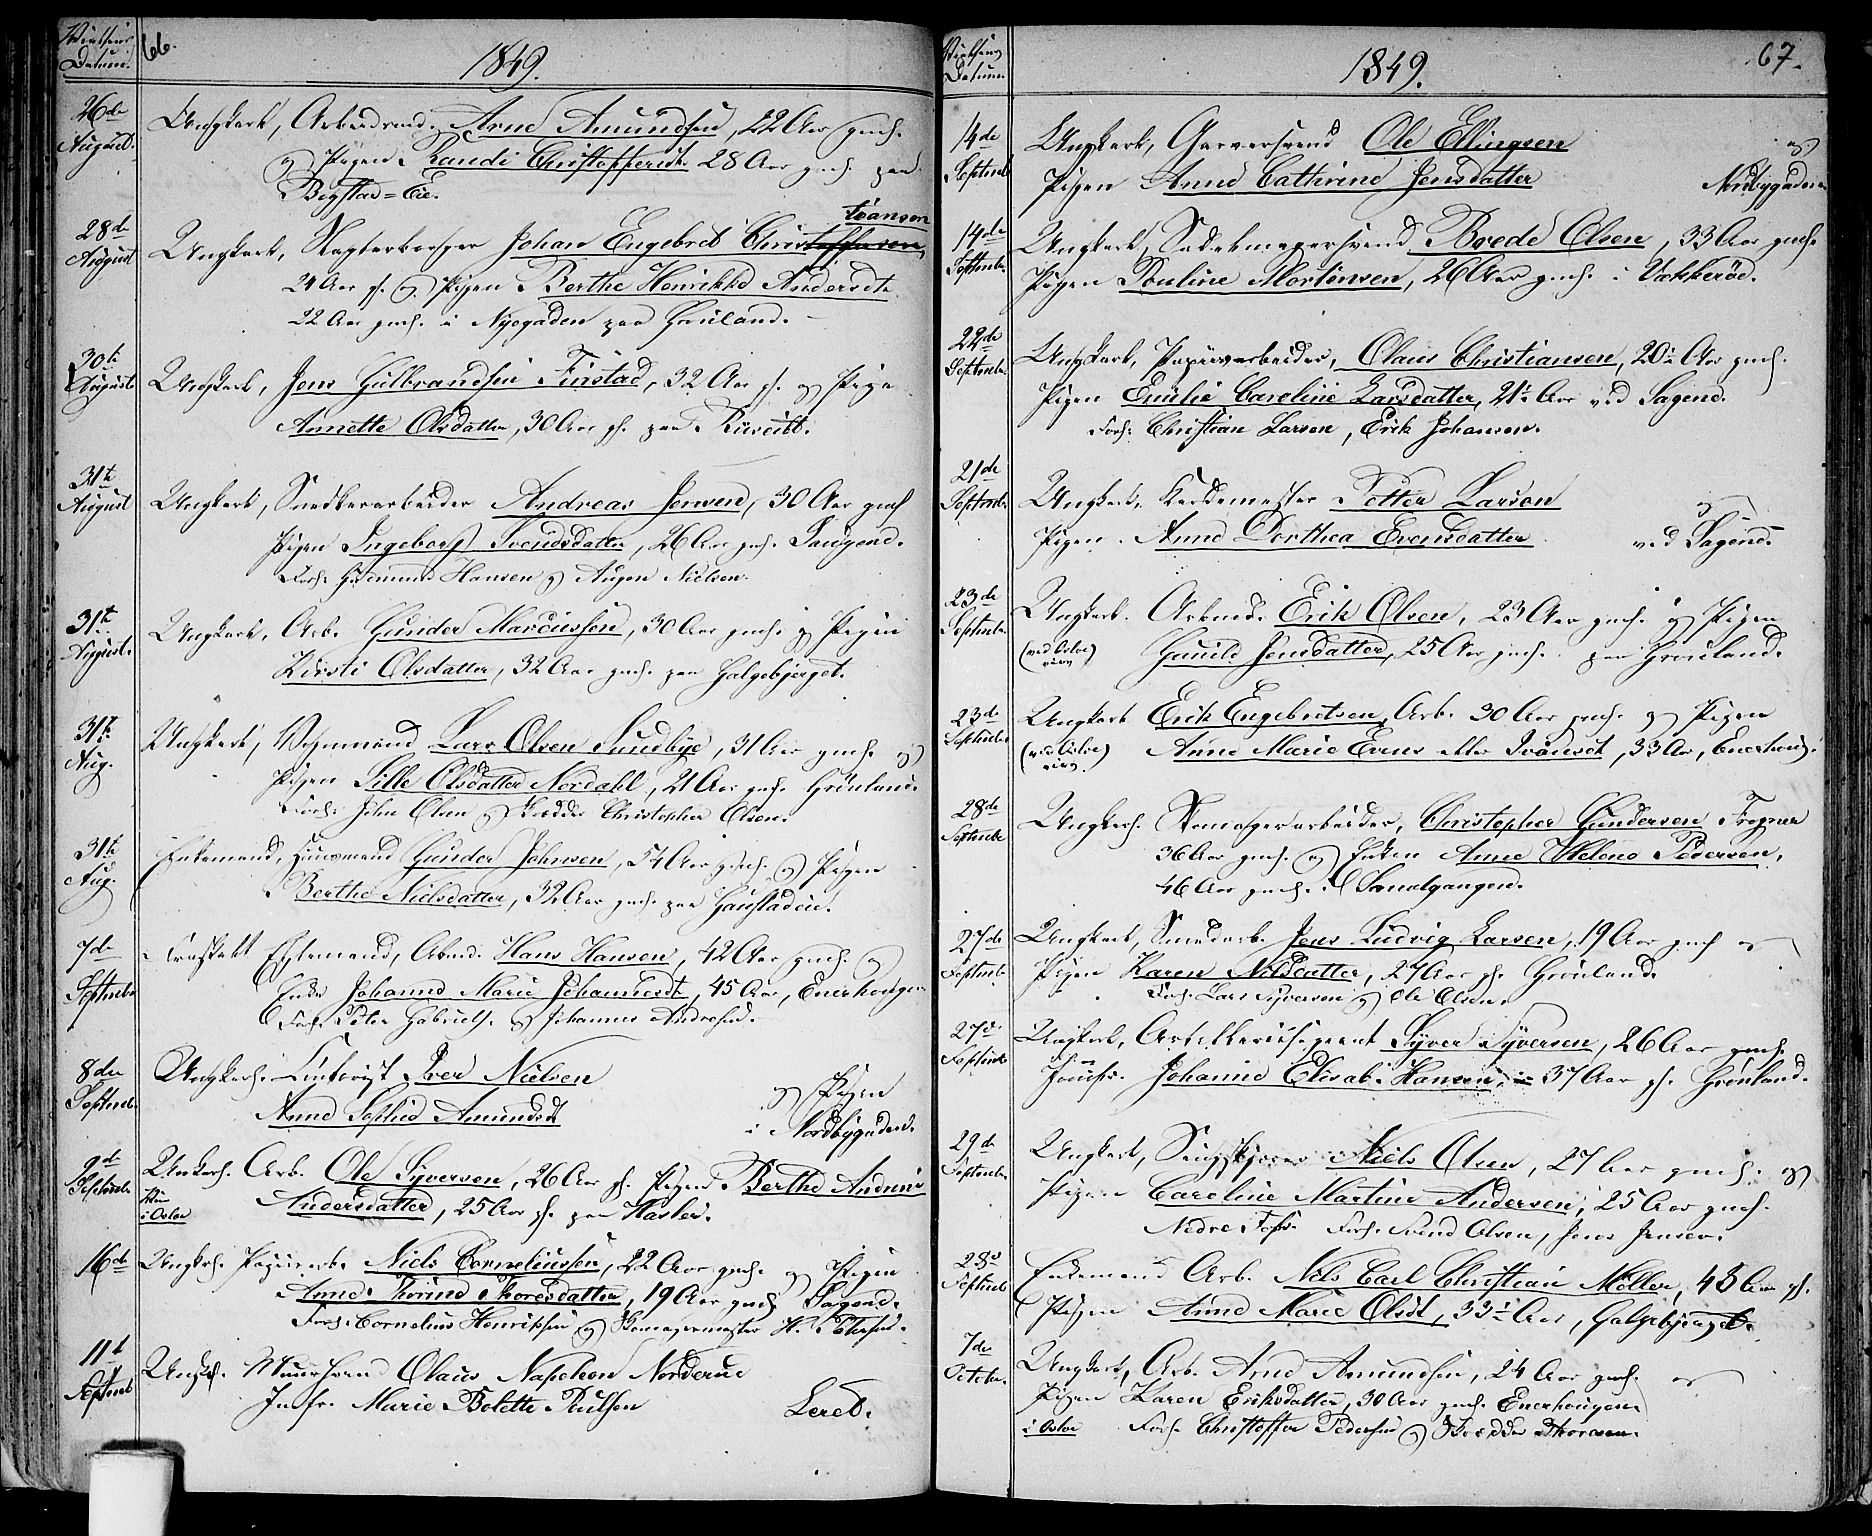 Vielsens Datum. 66. 1849.
26de August. Ungkarl, Arbeidsmd. Arne Amundsen, 22 Aar gmh.
og Pigen Randi Christoffersdt. 28 Aar gmh. paa
Bogstad=Eie.
28de August Ungkarl, Johan Engebret Christoffersen tiansen
24 Aar gh. og Pigen Berthe Henrikke Andersdt.
22 Aar gmh. i Nygaden paa Grønland.
30te August Ungkarl, Jens Gulbrandsen Finstad, 32 Aar gh. og Pige
Annette Olsdatter, 30 Aar gh. paa
31te August Ungkarl, Snedkerarbeider Andreas Jensen, 30 Aar gmh
Pigen Ingeborg Svendsdatter, 26 Aar gmh. Saugene.
Forl: Gudmund Hansen og Augen Nielsen.
31te August. Ungkarl, Arb. Gunder Marcussen, 30 Aar gmh. og Pigen
Kirsti Olsdatter, 32 Aar gmh. paa Galgebjerget.
31te Aug. Ungkarl, Vognmand Lars Olsen Sundbye, 31 Aar gmh. og
Pigen Sille Olsdatter Nordahl, 21 Aar gmh. Grønland.
Forl: John Olsen og Skrædder Christopher Olsen.
31te Aug. Enkemand, Huusmand Gunder Johnsen, 54 Aar gmh. og Pigen
Berthe Nielsdatter, 32 Aar gmh. paa
7de Septembr Fraskilt Egtemand, Arbmd. Hans Hansen, 42 Aar gmh. og
Enke Johanne Marie Johannesdt, 45 Aar, Enerhougen
Forl. Peter Gabriels. og Johannes Andresen.
8de Septembr. Ungkarl. Iver Nielsen og Pigen
Anne Sophie Amundsdt i Nordbygaden.
9de Septembr. Ungkarl. Arb. Ole Syversen, 26 Aar gh. Pigen Berthe Andrine
i Osloe Andersdatter, 25 Aar gh. paa Hasler.
16de Ungkarl. Papirarb. Niels Corneliussen, 22 Aar gmh. og Pigen
Anne Thorine Thoresdatter, 19 Aar gmh Sagene.
Forl: Cornelius Henriksen og Skomagermester H. Petersen.
11te Septembr Ungk. Muursvend Olaus Napoleon Norderue
Jmfr. Marie Bolette Paulsen Leret.
Vielsens Datum. 1849. 67.
14de Septembr Ungkarl, Garversvend Ole Ellingsen og
Pigen Anne Cathrine Jensdatter Nordbygaden.
14de Septembr. Ungkarl, Sadelmagersvend Brede Olsen, 33 Aar gmh.
Pigen Pouline Mortensen, 26 Aar gmh. i Vækkerøe.
22de Septembr. Ungkarl, Papirarbeider, Claus Christiansen, 20½ Aar gmh.
Pigen Emilie Caroline Larsdatter, 21½ Aar ved Sagene.
Forl: Christian Larsen, Erik Johansen.
21de Septembr. Ungkarl, Petter Larsen og
Pigen Anne Dorthea Evensdatter ved Sagene.
23de Septembr. Ungkarl. Arbmd. Erik Olsen, 23 Aar gmh. og Pigen
Gunild Jensdatter, 25 Aar gmh. paa Grønland.
23de Septembr. Ungkarl Erik Engebretsen, Arb. 30 Aar gmh. og Pigen
Anne Marie Evens eller Iversdt, 33 Aar, Enerhoug.
28de Septembr Ungkarl. Skomagerarbeider, Christopher Gundersen Frogner
36 Aar gmh. og Enken Anne Helene Pedersen,
46 Aar gmh. i Smalgangen.
27de Septembr. Ungkarl, Smedarb. Jens Ludvig Larsen, 19 Aar gmh og
Pigen Karen Nilsdatter, 27 Aar gh. Grønland.
Forl. Lars Syversen og Ole Olsen.
27de Septembr Ungkarl, Artillerisergeant Syver Syversen, 26 Aar gmh.
Jomfr. Johanne Elisab. Hansen, 37 Aar gh. Grønland.
29de Septembr. Ungkarl, Niels Olsen, 27 Aar gmh. og
Pigen Caroline Martine Andersen, 25 Aar gmh.
Nedre Foss. Forl. Svend Olsen, Jens Jensen.
28de Septembr Enkemand Arb. Nils Carl Christian Möller, 45 Aar gh.
Pigen Anne Marie Olsdt, 33½ Aar, Galgebjerget.
7de October. Ungkarl, Arb. Arne Amundsen, 24 Aar gmh. og
Pigen Karen Eriksdatter, 30 Aar gmh. Enerhougen.
i Osloe Forl. Christoffer Pedersen og Skrædder Thoresen.